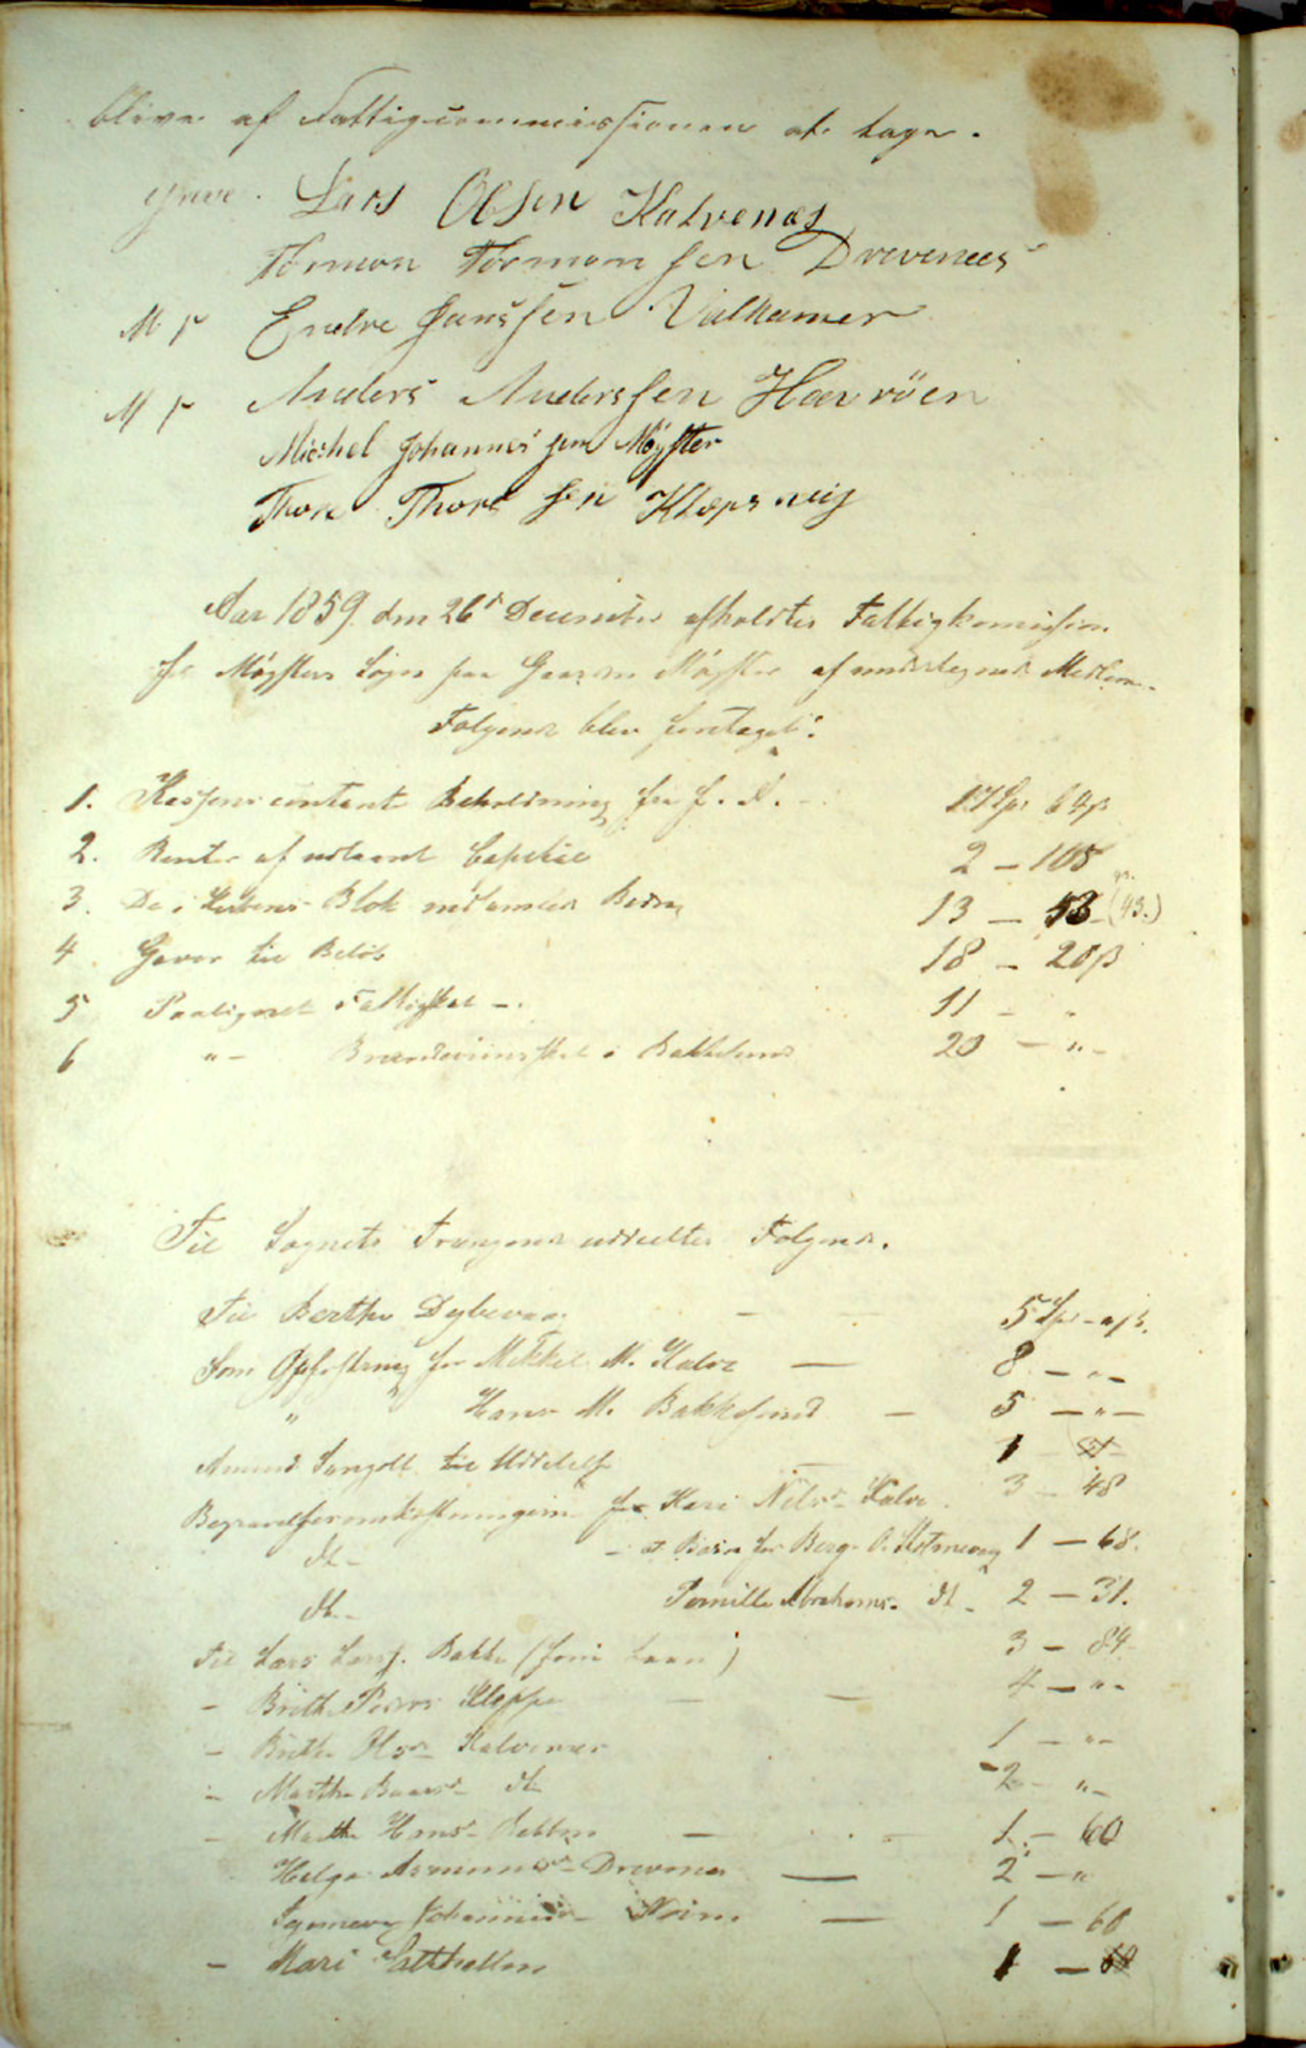 blive af Fattigcommissionen at tage.
Lars Olsen Kalvenæs
Tormon Tormonsen Drevenees
M P Endre Hanssen Valhamer
M P Anders Anderssen Hævröen
Michel Johannessen Møgster
Thore Thoresen Klepsvig
Aar 1859 den 26d December afholdtes Fattigkomission
for Møgsters Sogn paa Gaarden Møgster af undertegnede Medlem.
Følgende blev foretaget:
1. Kassens contante Beholdning fra f. A. - 17 Spd 64 ß
2. Renter af udlaant Capital 2 - 108
3. De i Kirkens Blok indkomne Bidrag 13 - 53 (43.)
4 Gaver til Beløb 18 - 20 ß
5 Paalignet Fattigskat - 11 - "
6 " - Brændeviinsskat i Bakkesund 20 - " -
Til Sognets Trængende uddeeltes Følgende.
Til Berthe Dybevaag - 5 Spd - " ß.
Som Opfostring for Mikkel M. Kalve - 8 - " -
" Hans M. Bakkesund - 5 - " -
Amund til 1
Begravelsesomkostningerne for Kari Nilsd. Kalve 3 - 48
dt - Barn for Berg. O. 1 - 68.
dt - Pernille Abrahams. dt - 2 - 31.
Til Lars Larss. Bakke (som Laan) 3 - 84
- Brithe Peders Kleppe - - 4 - " -
- Brithe Olsd. Kalvenæs 1 - " -
- Marthe dt 2 - " -
- Marthe Hansd. - 1 - 60
Helge Drevenes - 2 - "
Johannesd. - 1 - 60
- Mari 1 -